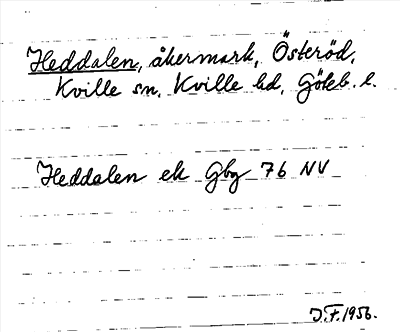 Heddalen, åkermark, Österöd,
Kville sn, Kville hd, Göteb. l.
Heddalen ek Gbg 76 NV
J.F. 1956.